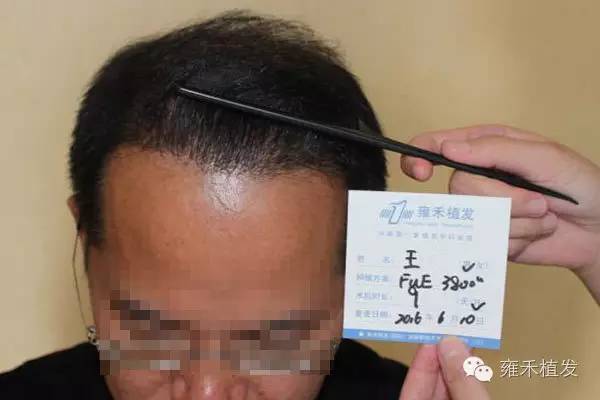 雍禾植发
姓 名: 王 男√ 女□
种植方案: FUE 3800
术后时长: 9 天
复查日期: 2016 年 6 月 10 日
雍禾植发